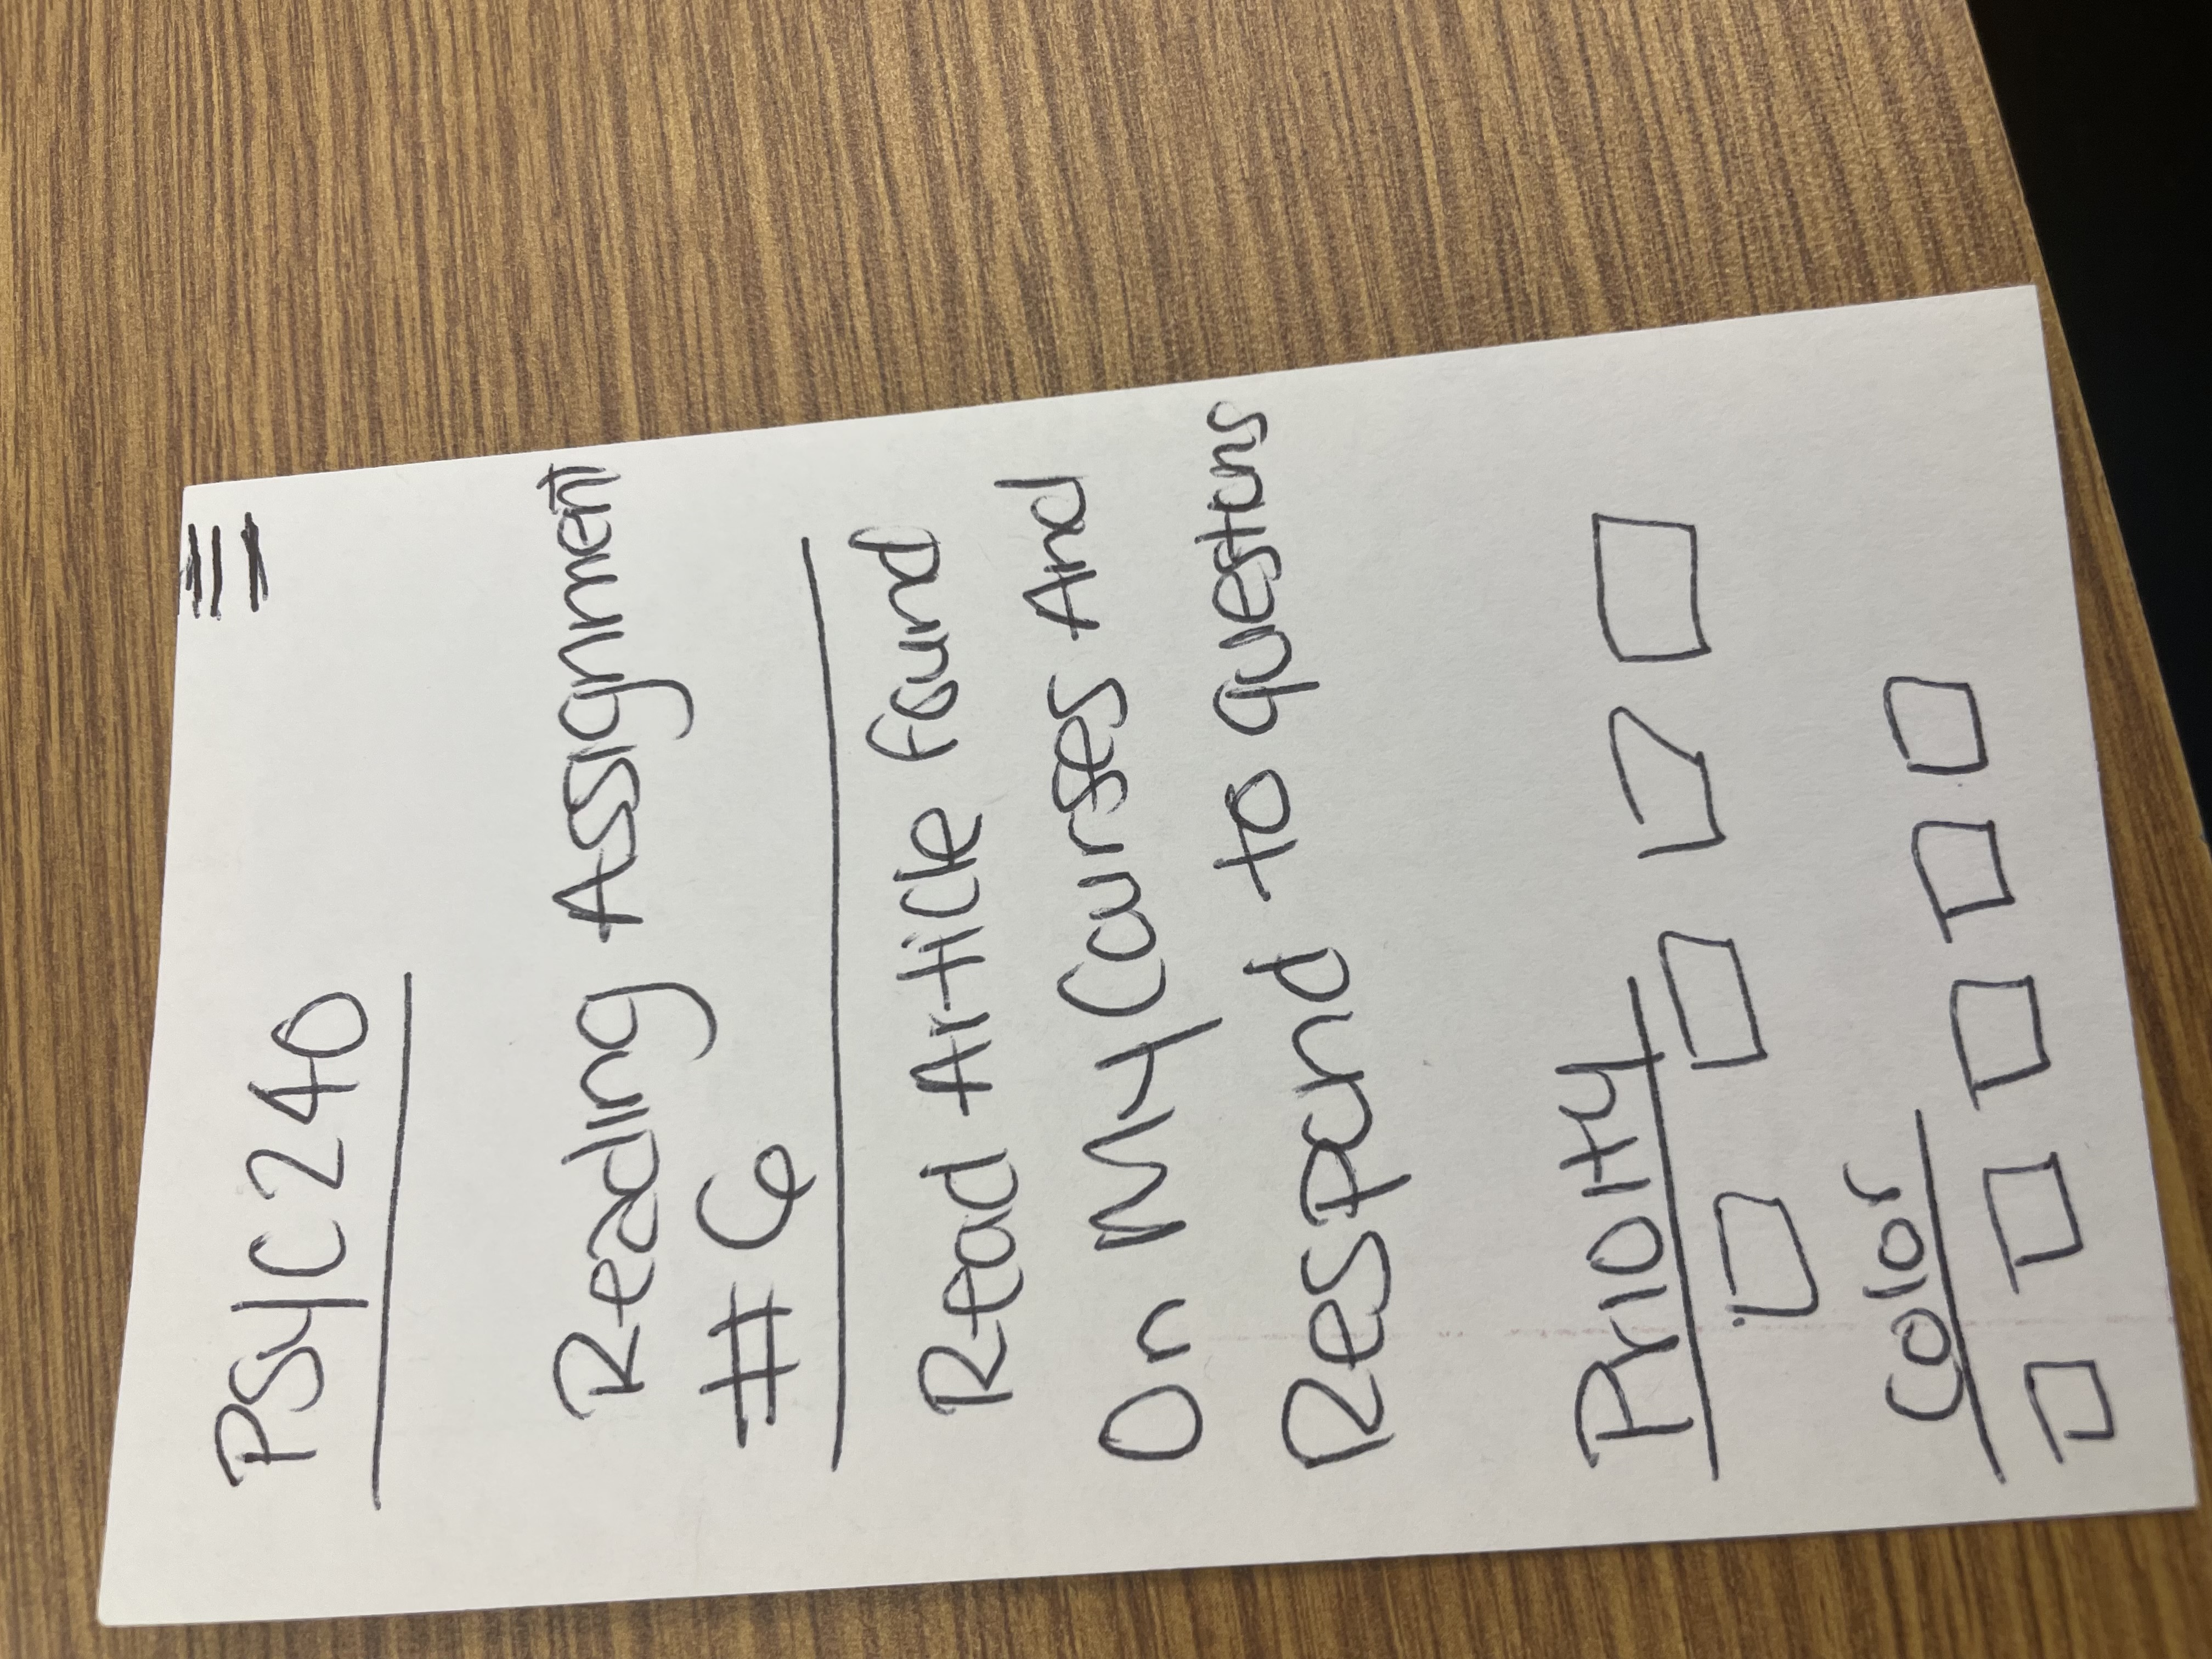 PSYC240
Reading Assignment
#6
Read Article found
On My Courses And
Respond to questions
Priority
Color